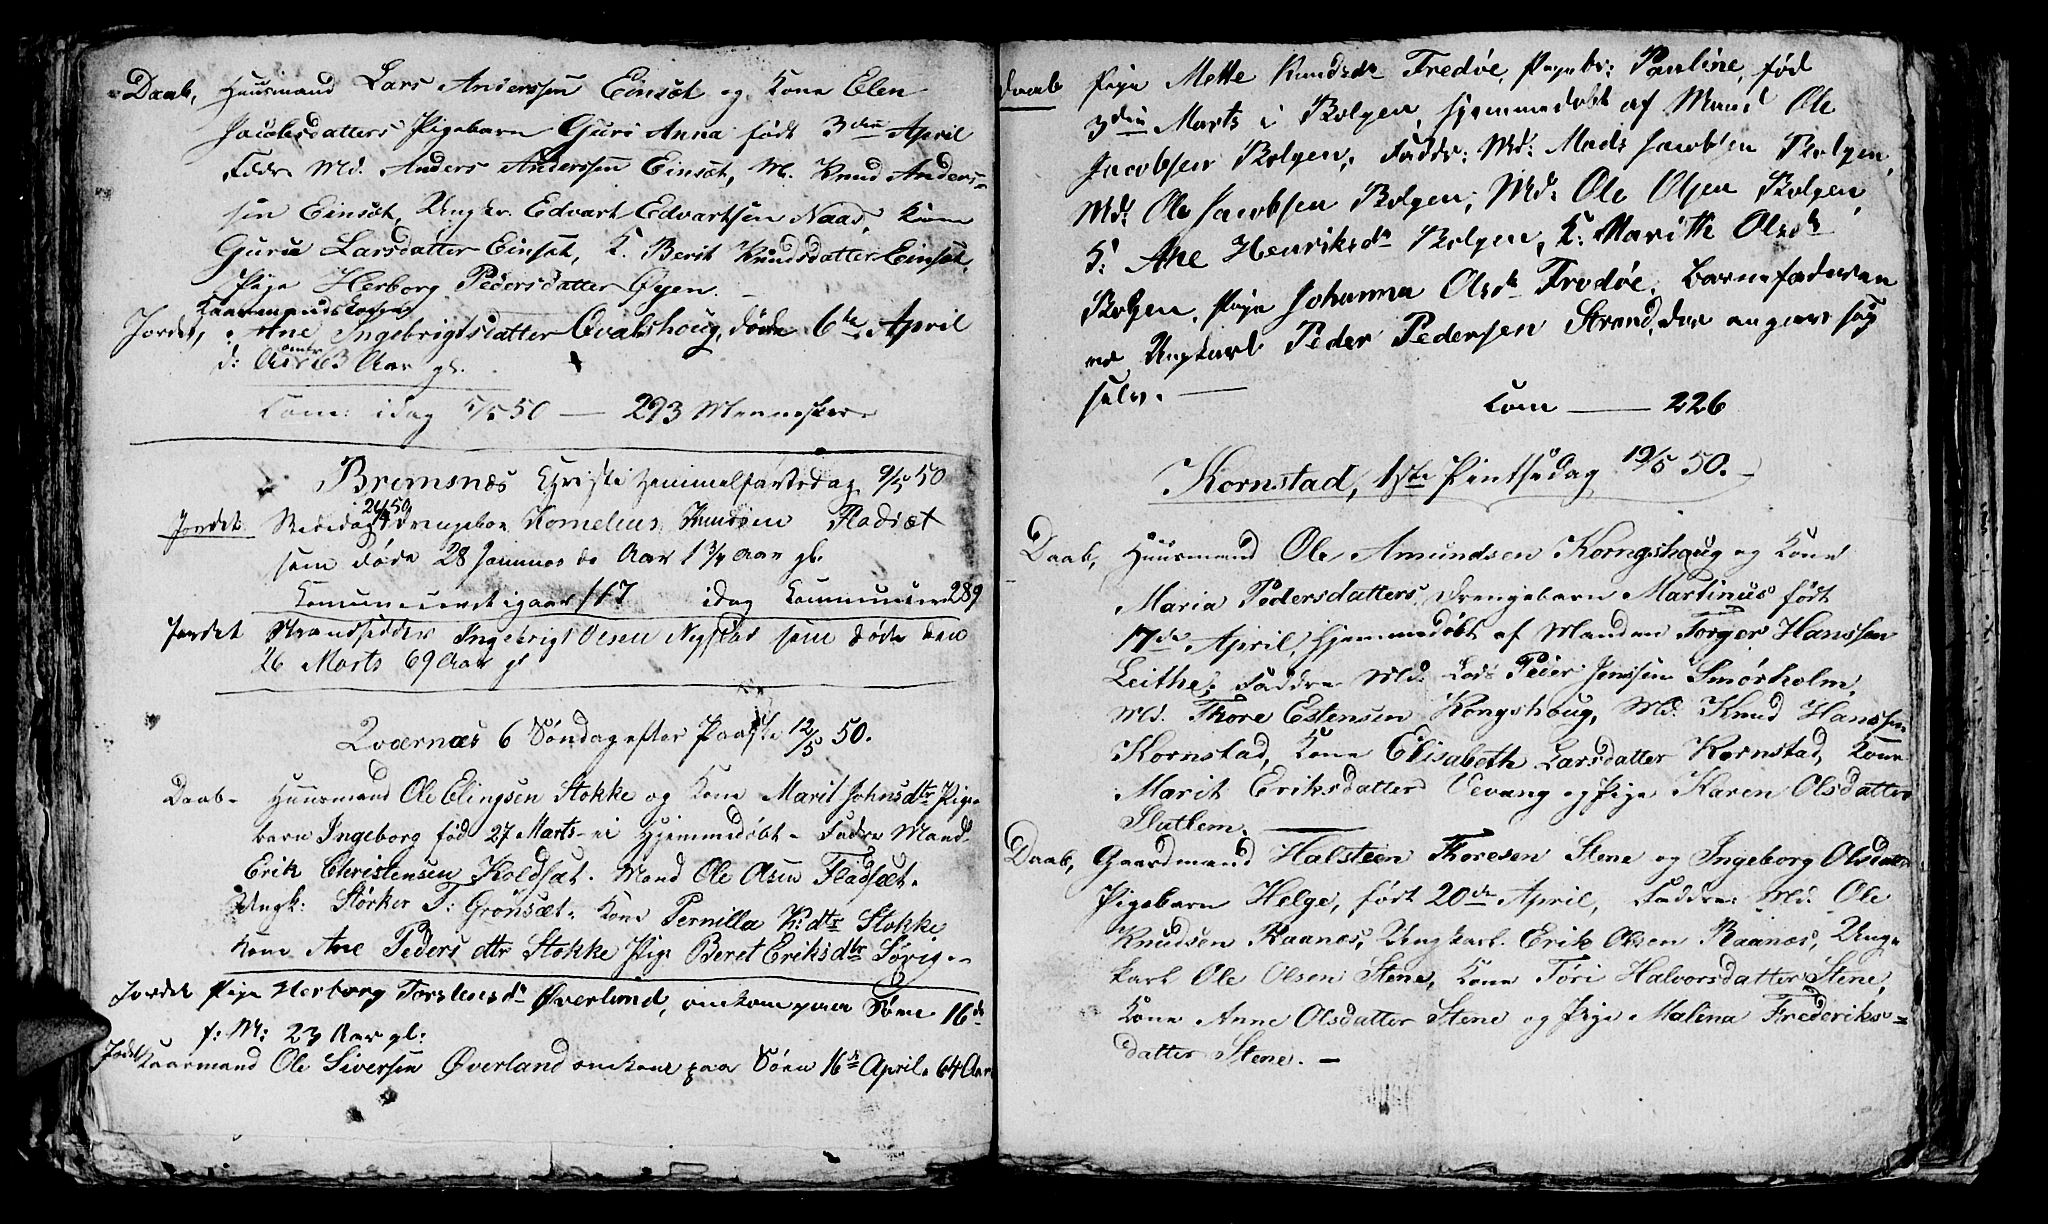 Daab, Huusmand Lars Anderssen Einsæt og Kone Elen
Jacobsdatters Pigebarn Guri Anna født 3die April
Fadr Md. Anders Anderssen Einsæt, M. Knud Anders-
sen Einsæt, Ungkr. Edvart Edvartsen Naas, Kone
Guru Larsdatter Einsæt, K. Berit Knudsdatter Einsæt,
Pige Herborg Pedersdatter Øyen.
Kaarmandskone
Jordet, Ane Ingebrigtsdatter Qvalshoug, døde 6te April
d: Aar 63 Aar gl.
Kom: idag 5/5 50 — 293 Mennesker
Bremsnæs Christi Himmelfartsdag 9/5 50
Jordet Drengebn Kornelius Knudsen Fladsæt
som døde 28 Januar d. Aar 1 3/4 Aar gl.
Komuniceret igaar 117 idag Communicer 289
Jordet Strandsidder Ingebrigt Olsen Nystad som døde den
26 Marts 69 Aar gl
Qværnæs 6 Søndag efter Paaske 12/5 50.
Daab- Huusmand Ole Elingsen Stokke og Kone Marit Johnsdtr Pige-
barn Ingeborg fød 27 Marts - ei Hjemmedøbt - Fadre Mand
Erik Christensen Koldsæt. Mand Ole Olsen Fladsæt.
Ungk: Størker T: Grønsæt. Kone Pernilla K:dtr Stokke
Kone Ane Peders dtr Stokke Pige Beret Eriksdtr Sørig-
Jordet Pige Herborg Torstensdr Øverland, omkom paa Søen 16de
f: M: 23 Aar gl:
Jordet Kaarmand Ole Siversen Øverland omkom paa Søen 16de April 64 Aar
Daab Pige Mette Knudsdr Fredøe, Pigebr: Pauline, fød
3die Marts i Bolgen, hjemmedøbt af Mand Ole
Jacobsen Bolgen, Faddr: Md: Mads Jacobsen Bolgen,
Md: Ole Jacobsen Bolgen, Md: Ole Olsen Bolgen,
K: Ane Henriksdr Bolgen, K: Marith Olsdr
Bolgen, Pige Johanna Olsdr Fredøe. Barnefaderen
er Ungkarl Peder Pedersen Strand, der angav sig
selv. —
Kom — 226
Kornstad, 1ste Pintsedag 19/5 50.
Daab, Huusmand Ole Amundsen Korngshoug og Kone
Maria Pedersdatters Drengebarn Martinus født
17de April, Hjemmedøbt af Manden Torger Hanssen
Leithe, Faddre Md: Peder Jenssen Smørholm,
Md. Thore Estensen Kongshoug, Md: Knud Hanssen
Kornstad, Kone Elisabeth Larsdatter Kornstad, Kone
Marit Eriksdatter Vevang og Pige Karen Olsdatter
Slatlem.
Daab, Gaardmand Halsteen Thoresen Stene og Ingeborg Olsdatter
Pigebarn Helge, født 20de April, Faddre: Md: Ole
Knudsen Raanes, Ungkarl Erik Olsen Raanes, Ung-
karl Ole Olsen Stene, Kone Tøri Halvorsdatter Stene,
Kone Anne Olsdatter Stene og Pige Malina Frederiks-
datter Stene. —